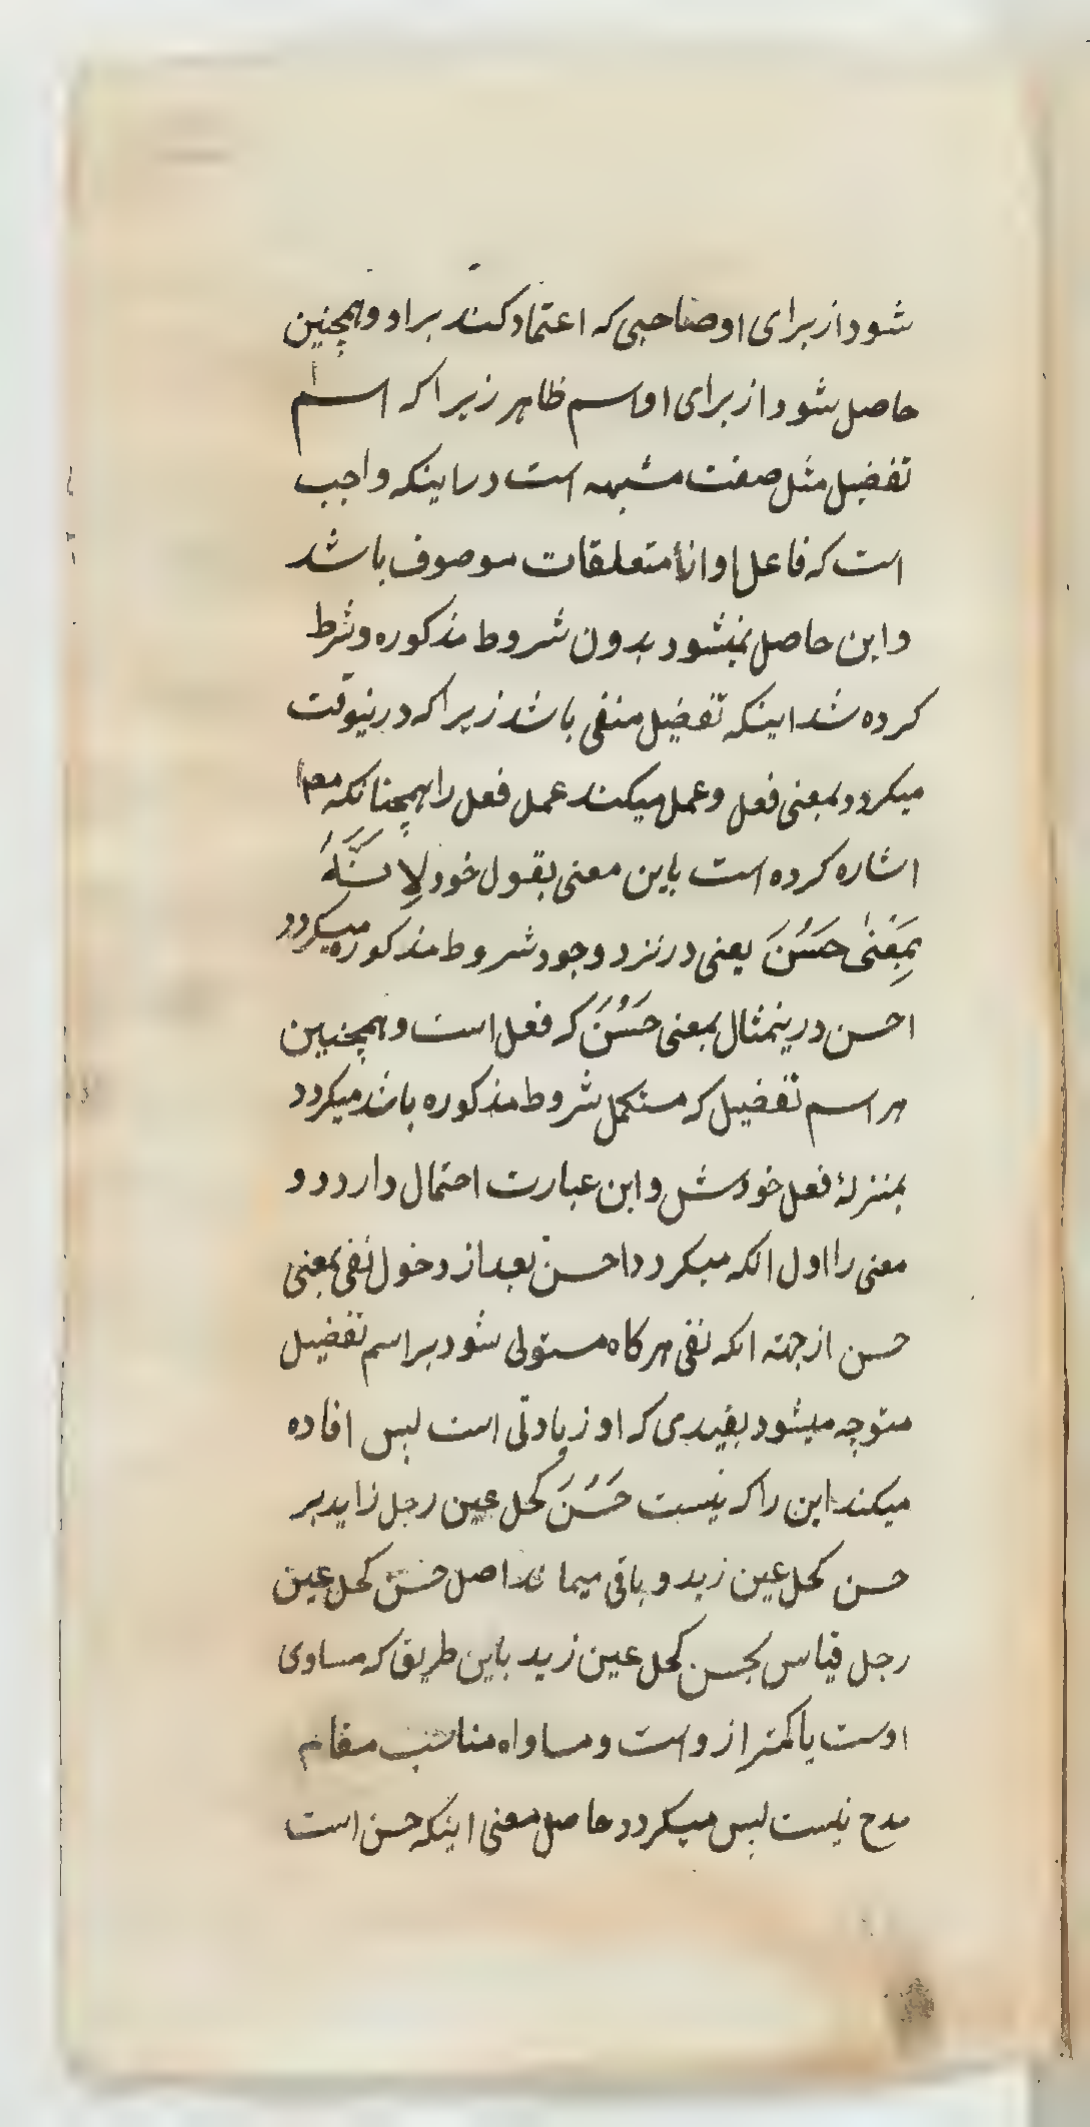 شود از برای او صاحبی که اعتماد کند بر او و همچنین
حاصل شود از برای او اسم ظاهر زیرا که اسم
تفضیل مثل صفت مشبهه است در اینکه واجب
است که فاعل او از متعلقات موصوف باشد
و این حاصل نمیشود بدون شروط مذکوره و شرط
کرده شد اینکه تفضیل منفی باشد زیرا که درینوقت
میکردد بمعنی فعل و عمل میکند عمل فعل را همچنانکه مصر
اشاره کرده است باین معنی بقول خود لِاَنَّهُ
بِمَعْنٰی حَسُنَ یعنی در نزد وجود شروط مذکوره میکردد
احسن درینمثال بمعنی حَسُنَ که فعل است و همچنین
هر اسم تفضیل که مستکمل شروط مذکوره باشد میکردد
بمنزلهٔ فعل خودش و این عبارت احتمال دارد دو
معنی را اول انکه میکردد احسن بعد از دخول نفی بمعنی
حسن از جهته انکه نفی هرکاه مستولی شود بر اسم تفضیل
متوجه میشود بقیدی که او زیادتی است پس افاده
میکند این را که نیست حَسُنَ کحل عین رجل زاید بر
حسن کحل عین زید و باقی میماند اصل حسن کحل عین
رجل قیاس بحسن کحل عین زید باین طریق که مساوی
اوست یا کمتر از وست و مساواه مناسب مقام
مدح نیست پس میکردد حاصل معنی اینکه حسن است